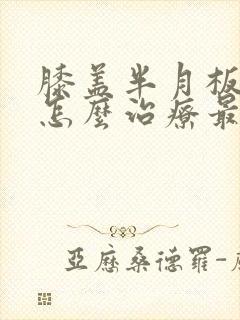 膝盖半月板
怎麼治療最
亞歷桑德羅-